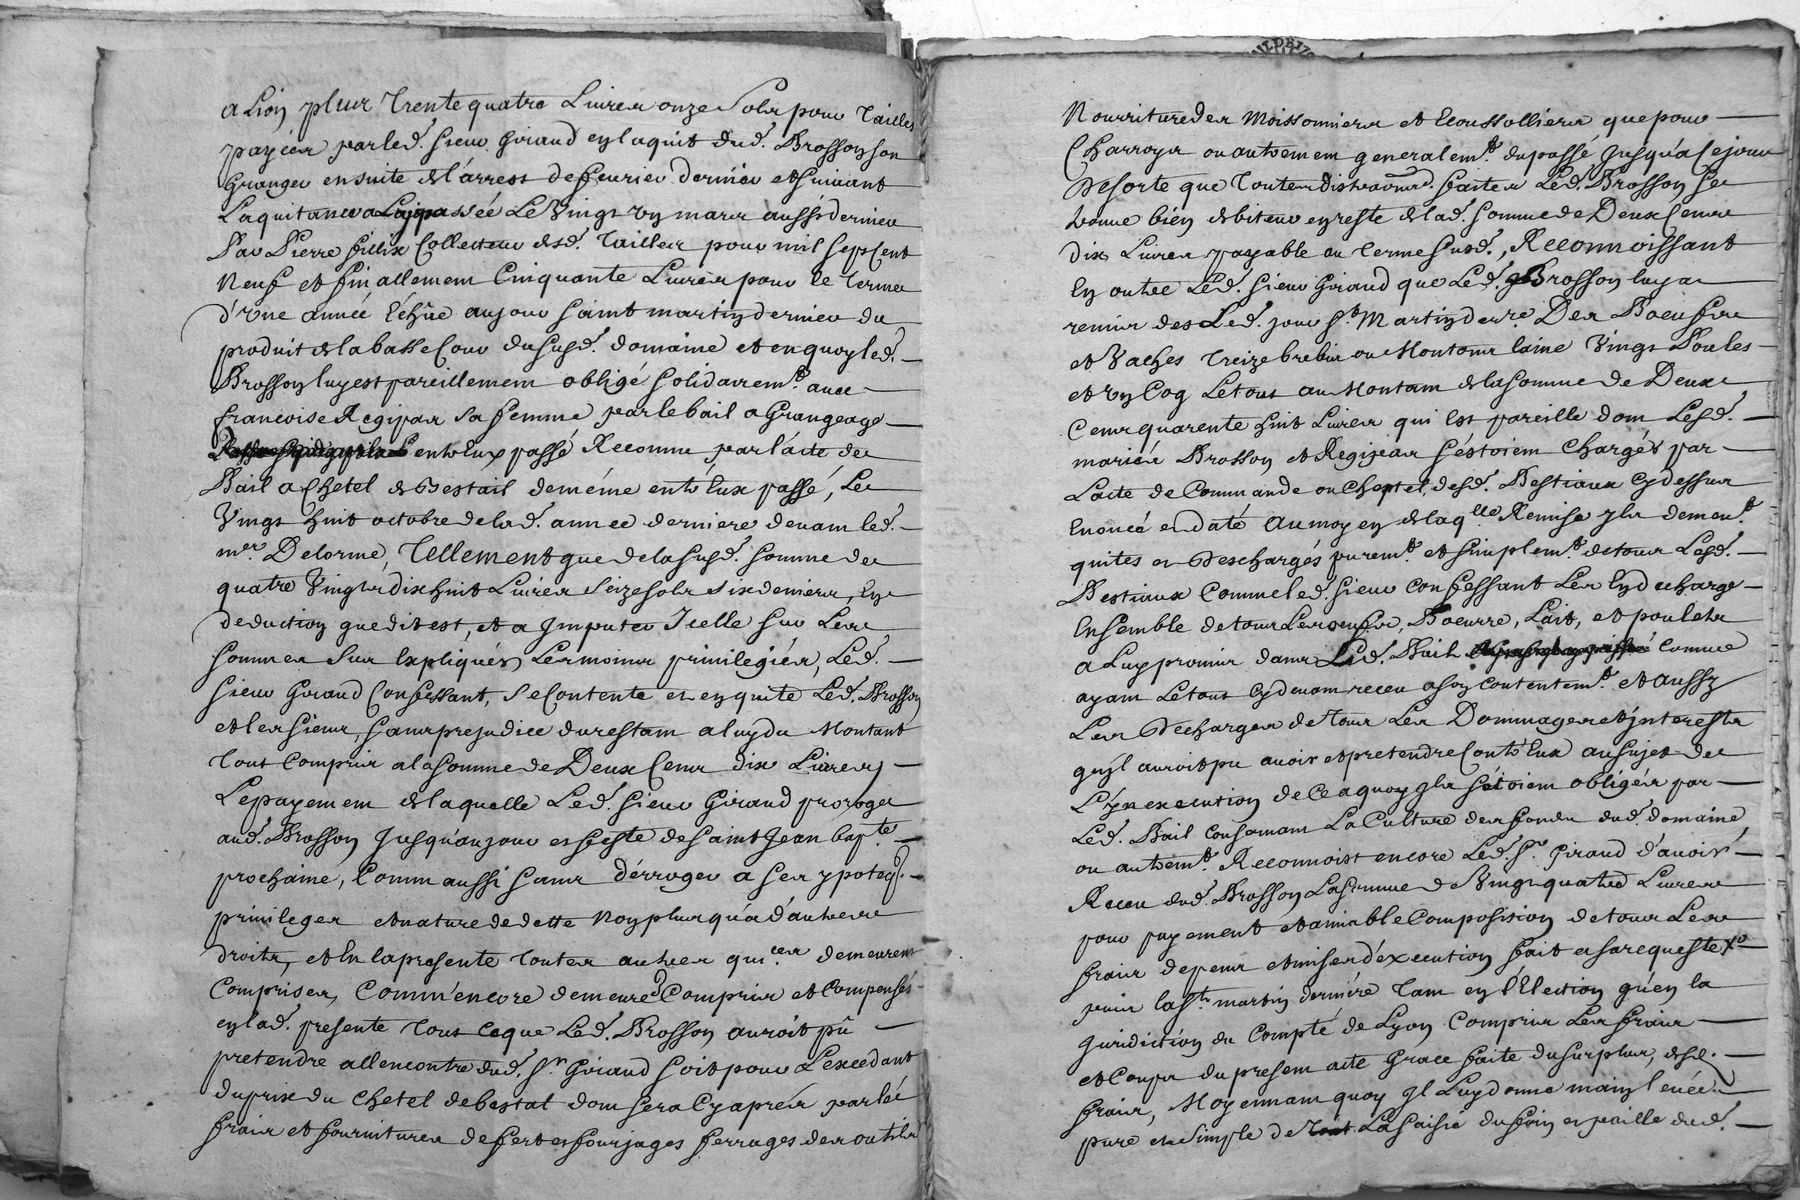 a Lion plus Trente quatre Livres onze sols pour Tailles
payéés par led. sieur Giraud en laquit dud. Brosson son
Granger ensuite de l'arrest de feurier dernier et suiuant
Laquitance passée Le Vingt un mars aussÿ dernier
Par Pierre fillix Collecteur desd. Tailles pour mil sept Cent
Neuf et finallement Cinquante Liures pour le terme
d'vne année échüe au jour saint martin dernier du
produit de la basse Cour du susd. domaine et en quoy led. —
Brosson luy est pareillement obligé solidairemt. auec —
francoise Regipas sa femme par le bail a Grangeage —
entr'Eux passé Reconnu par l'acte de
Bail a Chetel de Bestail de méme entr'éux passé, Le
Vingt huit octobre de lad. année derniere deuant led. —
mer. Delorme, Tellement que de la susd. somme de
quatre Vingts dix huit Liures seize sols six deniers, En
deduction que dit est, et a Imputer Icelle sur Les
sommes sus Expliqués Les moins priuilegiés, Led. —
sieur Giraud Confessant, se Contente et en quite Led. Brosson
et les siens, sans prejudice du restant a luy du Montant
tout Compris a la somme de Deux Cents dix Liures, —
Le payement de laquelle Led. sieur Giraud proroge
aud. Brosson Jusqu'au jour et feste de saint Jean bapte. —
prochaine, Comm aussi sans dérroger a ses ypoteq. —
priuileges et nature de dette Non plus qu'a d'autres
droits, et En la presente toutes autres quices demeurent
Comprises, Comm'encore demeure Compris et Compensés
en lad. presente tout ce que Led. Brosson auroit pû —
pretendre allencontre dud. sr. Giraud soit pour L'excedant
du prix du Chetel de bestal dont sera Cy aprés parlé
frais et fournitures de fert et fourjages ferrages des outils
Nourriture des Moissonniers et Ecoussolliers que pour —
Charroys ou autrement generalemt. du passé Jusqu'a ce jour
De sorte que toutes distractions faites Led. Brosson se
treuue bien debiteur en reste de lad. somme de Deux Cents
dix Liures payable au terme susd., Reconnoissant
En outre Led. sieur Giraud que Led. Brosson luy a
remis des Led. jour st. Martin derre. Des Boeufs
et Vaches treize brebis ou Moutons laine Vingt Poules —
et vn Coq Le tout au Montant de la somme de Deux
Cents quarente huit Liures qui Est pareille dont Lesd. —
mariés Brosson et Regipas s'éstoient Chargés par —
Lacte de Commande ou Cheptel, desd. Bestiaux Cy dessus
Enoncé et daté au moyen de laqlle Remise yls demeurt.
quites et Deschargés puremt. et simplemt. de tous Lesd. —
Bestiaux Comme led. sieur confessant Les En decharge —
Ensemble de tous Les oeufs, Boeurre, Lait, et poulets
a Luy promis dans Led. Bail comme
ayant Le tout Cy deuant receu a son Contentemt. et aussy
Les Decharges de tous Les Dommages et jnterests
qu'jl auroit pu auoir et pretendre Contr'Eux au sujet de
L'ynexecution de Ce a quoy yls s'etoient obligés par —
Led. Bail Consernant La Culture des fonds dud. domaine
ou autremt. Reconnoist encore Led. sr. Giraud d'auoir —
Receu dud. Brosson La somme de Vingt quatre Liures
pour payement et amiable Composision de tous Les
frais depens et mises d'éxecution fait a sa requeste
puis la st. martin derniére tant en l'Election qu'en la
juridiction du Compté de Lyon Compris Les frais —
et Couts du present acte Grace faite du surplus, desd. —
frais, Moyennant quoy Jl Luy donne main leuée —
pure et simple de La saisie du foin et paille dud. —